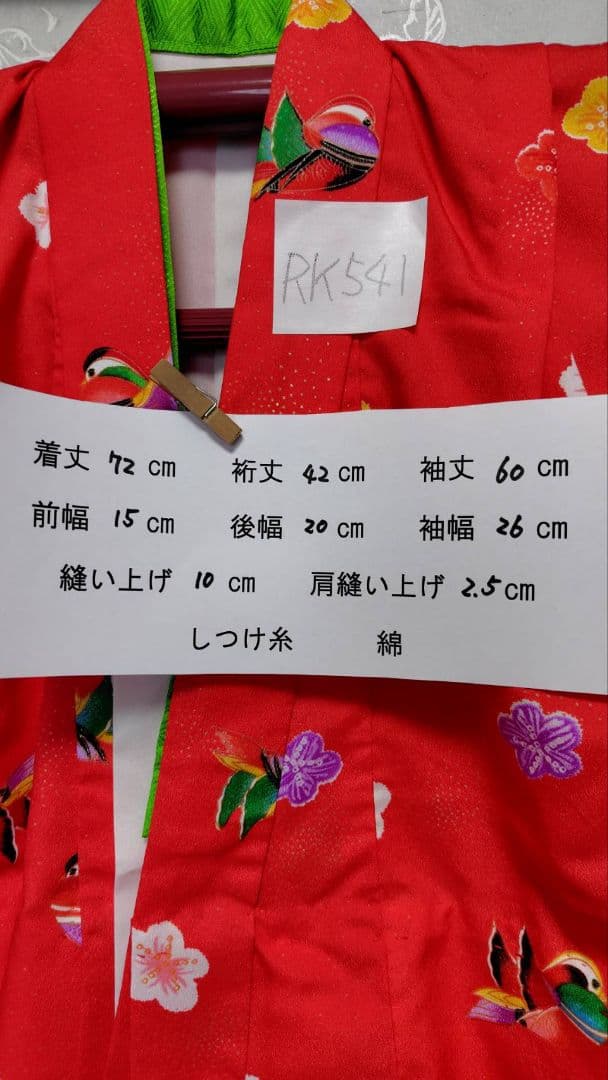 RK541
着丈 72 cm 裄丈 42 cm 袖丈 60 cm
前幅 15 cm 後幅 20 cm 袖幅 26 cm
縫い上げ 10 cm 肩縫い上げ 2.5 cm
しつけ糸 綿